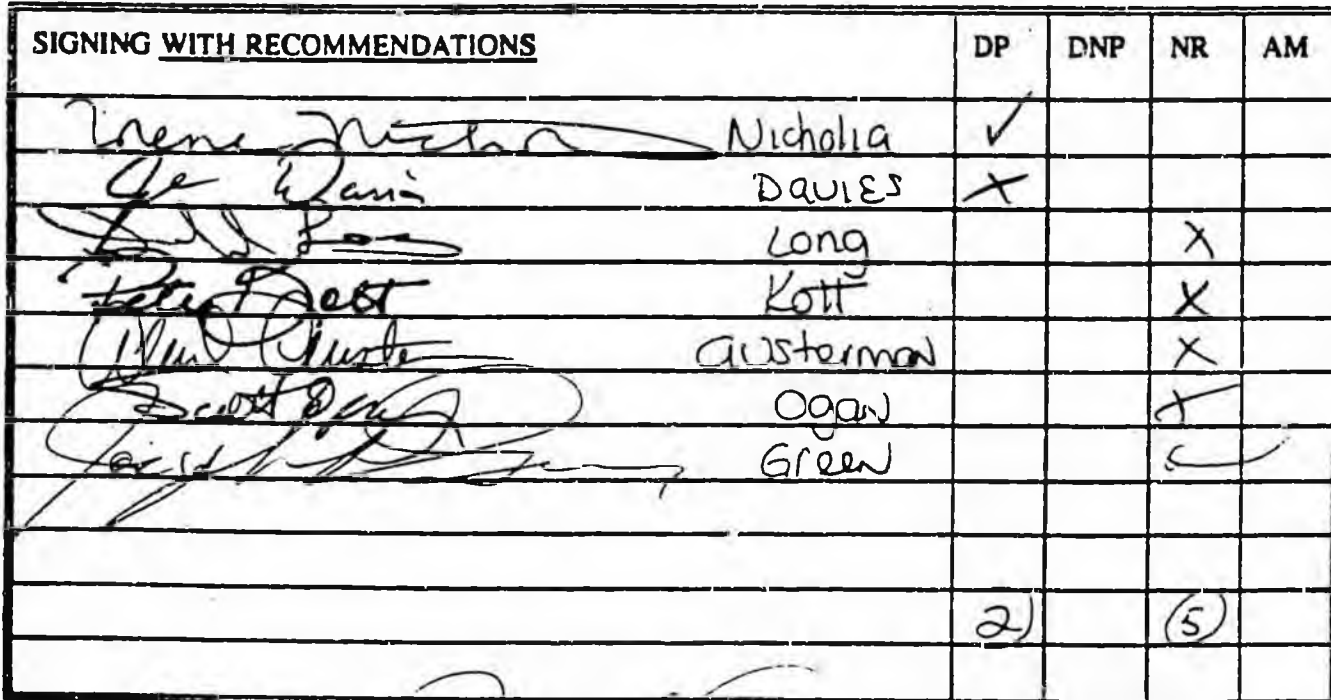 SIGNING WITH RECOMMENDATIONS DP DNP NR AM
Irene Nicholia ✓
Davies X
Long X
Pete Kott Kott X
Austerman X
Scott Ogan Ogan X
Green ✓
2) (5)